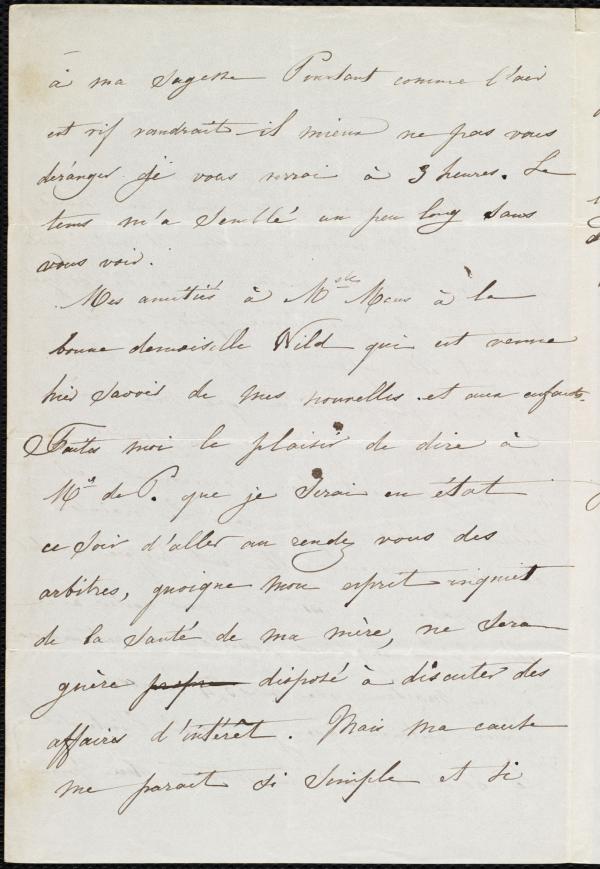 à ma sagesse Pourtant comme l'air
est vif vaudrait-il mieux ne pas vous
déranger je vous verrai à 3 heures. Le
tems m'a semblé un peu long sans
vous voir.
Mes amitiés à à la
bonne demoiselle Wild qui est venue
hier savoir de mes nouvelles et aux enfants.
Faites moi le plaisir de dire à
Mr de P. que je serai en état
ce soir d'aller au rendez vous des
arbitres, quoique mon esprit inquiet
de la santé de ma mère, ne sera
guère propre disposé à discuter des
affaires d'intérêt. Mais ma cause
me parait si simple et si